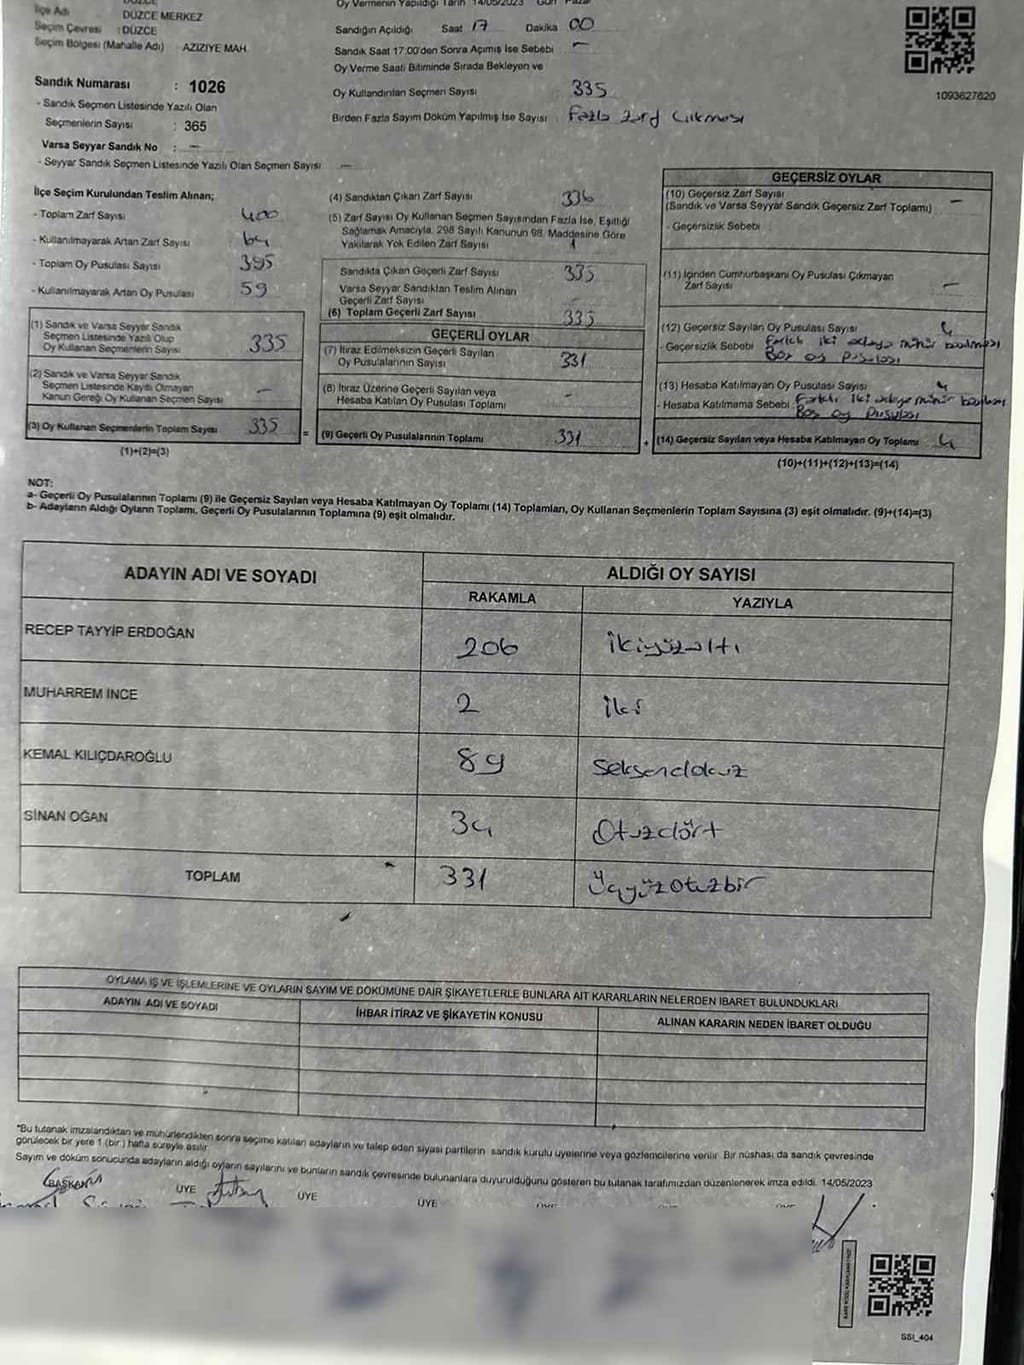 DÜZCE
İlçe Adı DÜZCE MERKEZ
Seçim Çevresi : DÜZCE
Seçim Bölgesi (Mahalle Adı) AZIZIYE MAH.
Sandık Numarası : 1026
- Sandık Seçmen Listesinde Yazılı Olan
Seçmenlerin Sayısı : 365
Varsa Seyyar Sandık No : —
- Seyyar Sandık Seçmen Listesinde Yazılı Olan Seçmen Sayısı —
Oy Vermenin Yapıldığı Tarih 14/05/2023 Gün Pazar
Sandığın Açıldığı Saat 17 Dakika 00
Sandık Saat 17:00'den Sonra Açımış Ise Sebebi —
Oy Verme Saati Bitiminde Sırada Bekleyen ve
Oy Kullandırılan Seçmen Sayısı 335
Birden Fazla Sayım Döküm Yapılmış Ise Sayısı Fazla zarf Çıkması
1093627620
İlçe Seçim Kurulundan Teslim Alınan;
- Toplam Zarf Sayısı 400
- Kullanılmayarak Artan Zarf Sayısı 64
- Toplam Oy Pusulası Sayısı 395
- Kullanılmayarak Artan Oy Pusulası 59
(1) Sandık ve Varsa Seyyar Sandık
Seçmen Listesinde Yazılı Olup
Oy Kullanan Seçmenlerin Sayısı 335
(2) Sandık ve Varsa Seyyar Sandık
Seçmen Listesinde Kayıtlı Olmayan
Kanun Gereği Oy Kullanan Seçmen Sayısı —
(3) Oy Kullanan Seçmenlerin Toplam Sayısı 335
(1)+(2)=(3)
(4) Sandıktan Çıkan Zarf Sayısı 336
(5) Zarf Sayısı Oy Kullanan Seçmen Sayısından Fazla Ise, Eşitliği
Sağlamak Amacıyla, 298 Sayılı Kanunun 98. Maddesine Göre
Yakılarak Yok Edilen Zarf Sayısı 1
Sandıkta Çıkan Geçerli Zarf Sayısı 335
Varsa Seyyar Sandıktan Teslim Alınan
Geçerli Zarf Sayısı —
(6) Toplam Geçerli Zarf Sayısı 335
GEÇERLİ OYLAR
(7) İtiraz Edilmeksizin Geçerli Sayılan
Oy Pusulalarının Sayısı 331
(8) İtiraz Üzerine Geçerli Sayılan veya
Hesaba Katılan Oy Pusulası Toplamı -
= (9) Geçerli Oy Pusulalarının Toplamı 331
GEÇERSİZ OYLAR
(10) Geçersiz Zarf Sayısı
(Sandık ve Varsa Seyyar Sandık Geçersiz Zarf Toplamı) —
- Geçersizlik Sebebi
(11) İçinden Cumhurbaşkanı Oy Pusulası Çıkmayan
Zarf Sayısı —
(12) Geçersiz Sayılan Oy Pusulası Sayısı 4
- Geçersizlik Sebebi Farklı iki adaya mühür basılması
Boş oy pusulası
(13) Hesaba Katılmayan Oy Pusulası Sayısı 4
- Hesaba Katılmama Sebebi Farklı iki adaya mühür basılması
Boş oy pusulası
+ (14) Geçersiz Sayılan veya Hesaba Katılmayan Oy Toplamı 4
(10)+(11)+(12)+(13)=(14)
NOT:
a- Geçerli Oy Pusulalarının Toplamı (9) ile Geçersiz Sayılan veya Hesaba Katılmayan Oy Toplamı (14) Toplamları, Oy Kullanan Seçmenlerin Toplam Sayısına (3) eşit olmalıdır. (9)+(14)=(3)
b- Adayların Aldığı Oyların Toplamı, Geçerli Oy Pusulalarının Toplamına (9) eşit olmalıdır.
ADAYIN ADI VE SOYADI ALDIĞI OY SAYISI
RAKAMLA YAZIYLA
RECEP TAYYİP ERDOĞAN 206 İkiyüzaltı
MUHARREM İNCE 2 İki
KEMAL KILIÇDAROĞLU 89 Seksendokuz
SİNAN OĞAN 34 Otuzdört
TOPLAM 331 Üçyüzotuzbir
OYLAMA İŞ VE İŞLEMLERİNE VE OYLARIN SAYIM VE DÖKÜMÜNE DAİR ŞİKAYETLERLE BUNLARA AİT KARARLARIN NELERDEN İBARET BULUNDUKLARI
ADAYIN ADI VE SOYADI İHBAR İTİRAZ VE ŞİKAYETİN KONUSU ALINAN KARARIN NEDEN İBARET OLDUĞU
*Bu tutanak imzalandıktan ve mühürlendikten sonra seçime katılan adayların ve talep eden siyasi partilerin sandık kurulu üyelerine veya gözlemcilerine verilir. Bir nüshası da sandık çevresinde
görülecek bir yere 1 (bir) hafta süreyle asılır.
Sayım ve döküm sonucunda adayların aldığı oyların sayılarını ve bunların sandık çevresinde bulunanlara duyurulduğunu gösteren bu tutanak tarafımızdan düzenlenerek imza edildi. 14/05/2023
BAŞKAN ÜYE ÜYE ÜYE
SSI_404